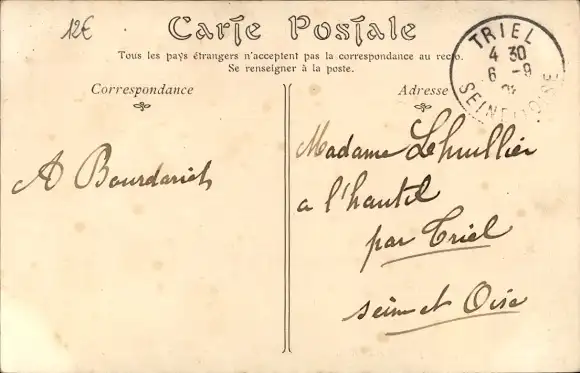 12€
Carte Postale
Tous les pays étrangers n'acceptent pas la correspondance au recto.
Se renseigner à la poste.
Correspondance
Adresse
TRIEL
4 30
6 -9
SEINE ET OISE
A Bourdariet
Madame Lehuillier
a l'hautil
par Triel
seine et Oise